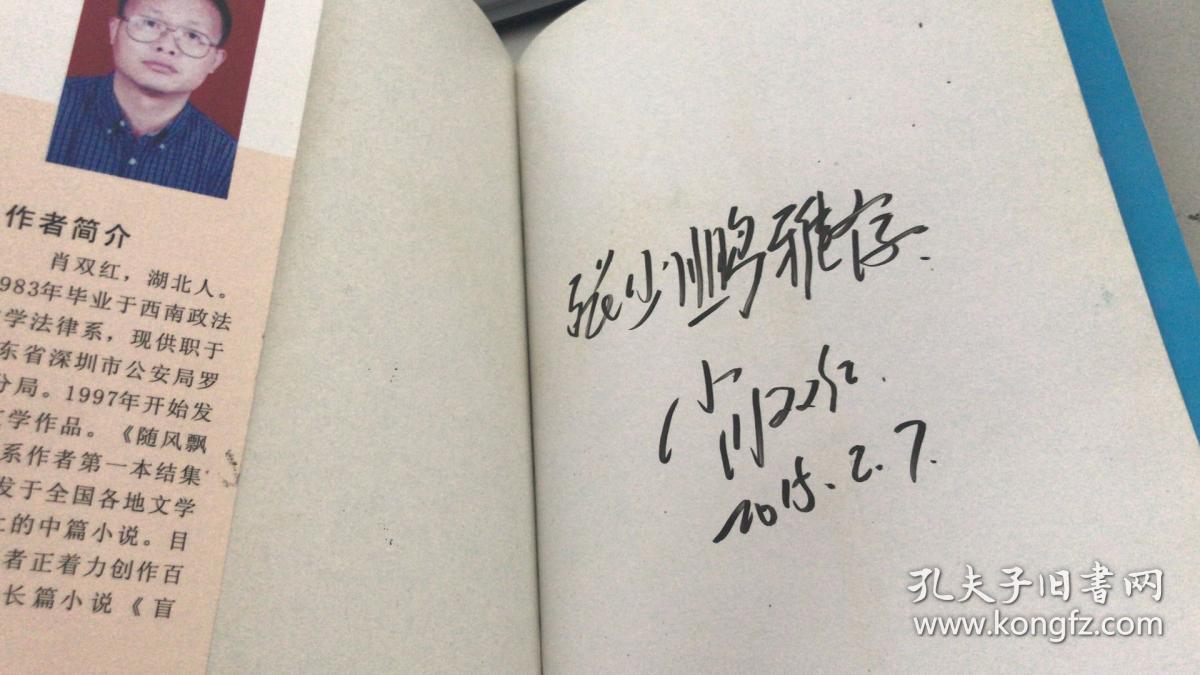 作者简介
肖双红，湖北人。
983年毕业于西南政法
学法律系，现供职于
东省深圳市公安局罗
分局。1997年开始发
文学作品。《随风飘
系作者第一本结集
发于全国各地文学
上的中篇小说。目
者正着力创作百
长篇小说《盲
张少鹏雅存.
肖双红.
2015.2.7.
孔夫子旧书网
www.kongfz.com